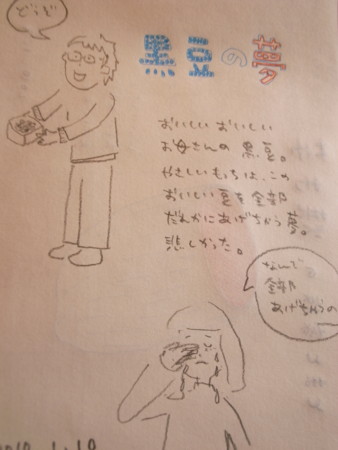 どうぞ
黒豆の夢
おいしいおいしい
お母さんの黒豆。
やさしいもっちは、この
おいしい豆を全部
だれかにあげちゃう夢。
悲しかった。
なんで
全部
あげちゃうの